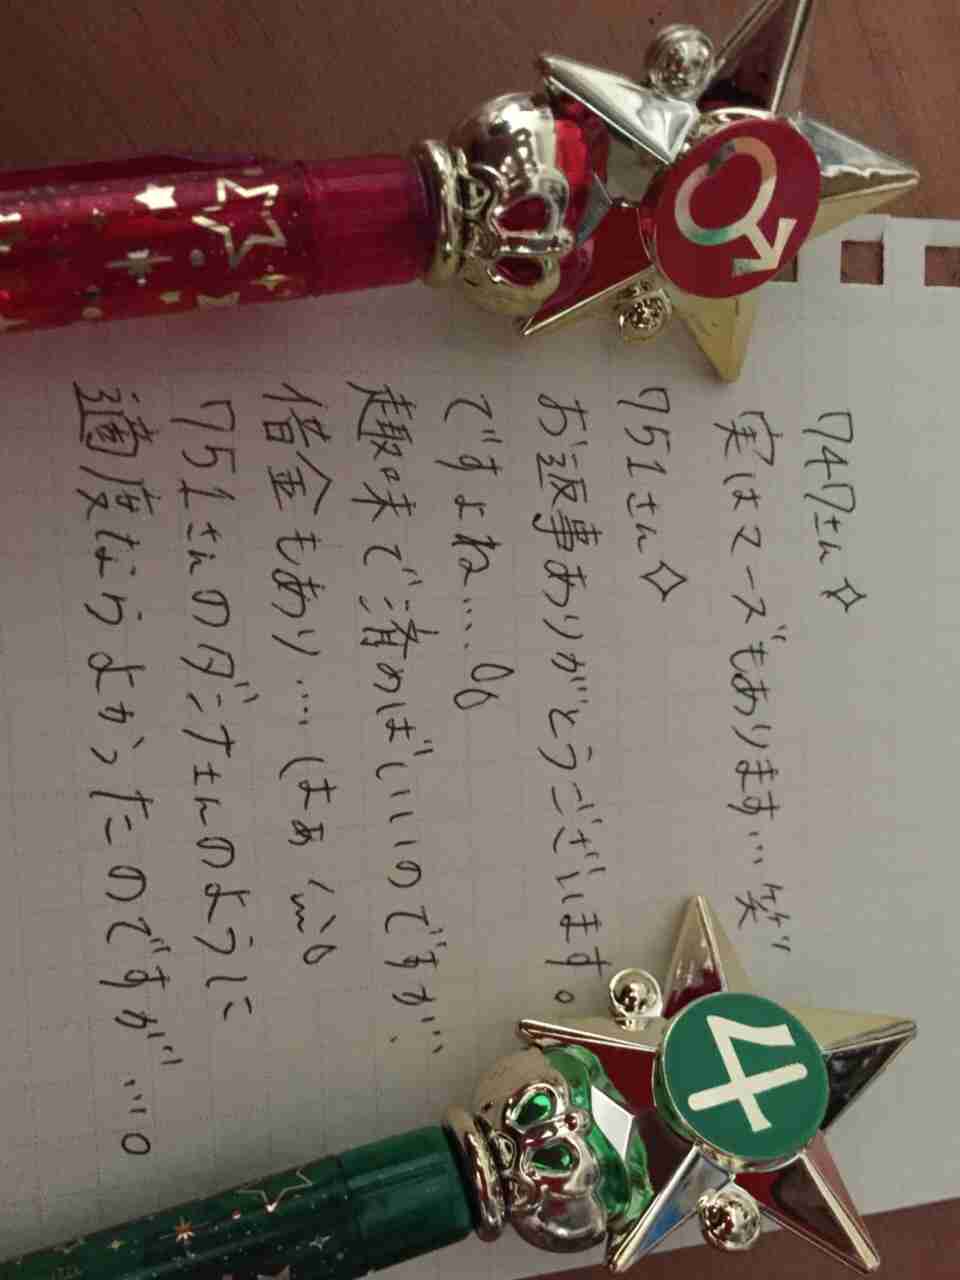 747さん◇
実はマーズもあります…笑
751さん◇
お返事ありがとうございます。
ですよね…。
趣味で済めばいいのですが、
借金もあり…。はぁ
751さんのダンナさんのように
適度ならよかったのですが…。
♂
♃